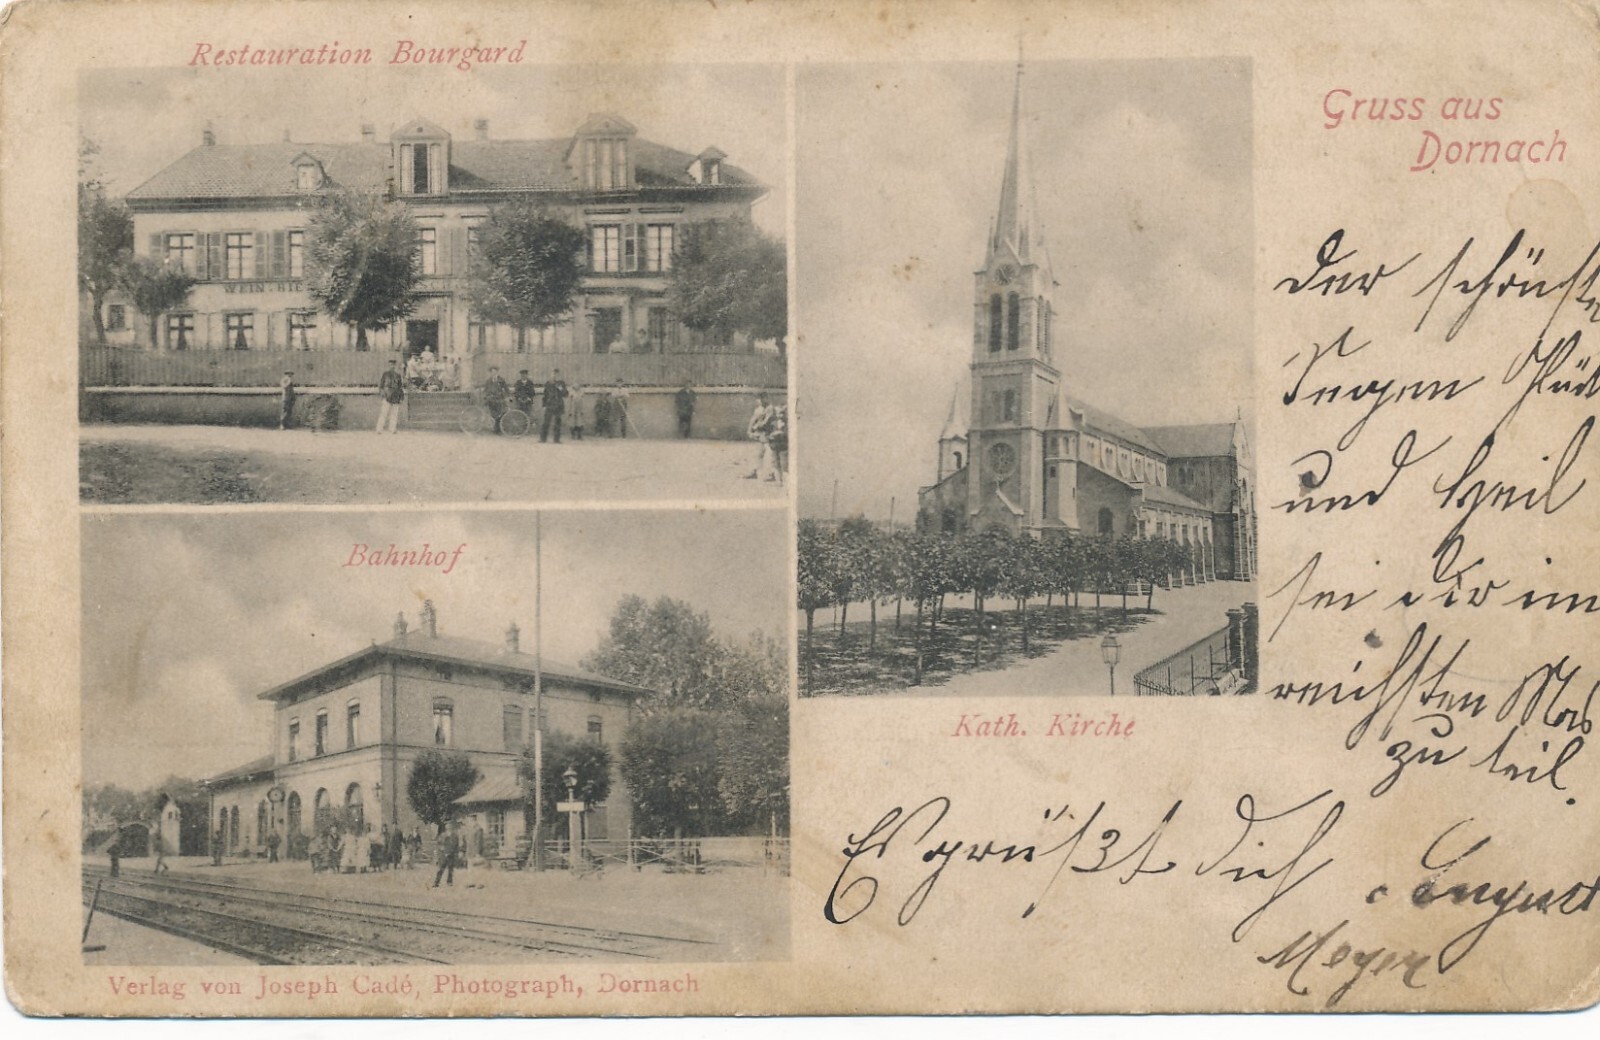 Restauration Bourgard
WEIN BIE
Gruss aus
Dornach
Der schönste
Segen Glück
und Heil
sei dir im
reichsten Mas
zu teil.
Bahnhof
Kath. Kirche
Es grüßt dich August
Meyer
Verlag von Joseph Cadé, Photograph, Dornach